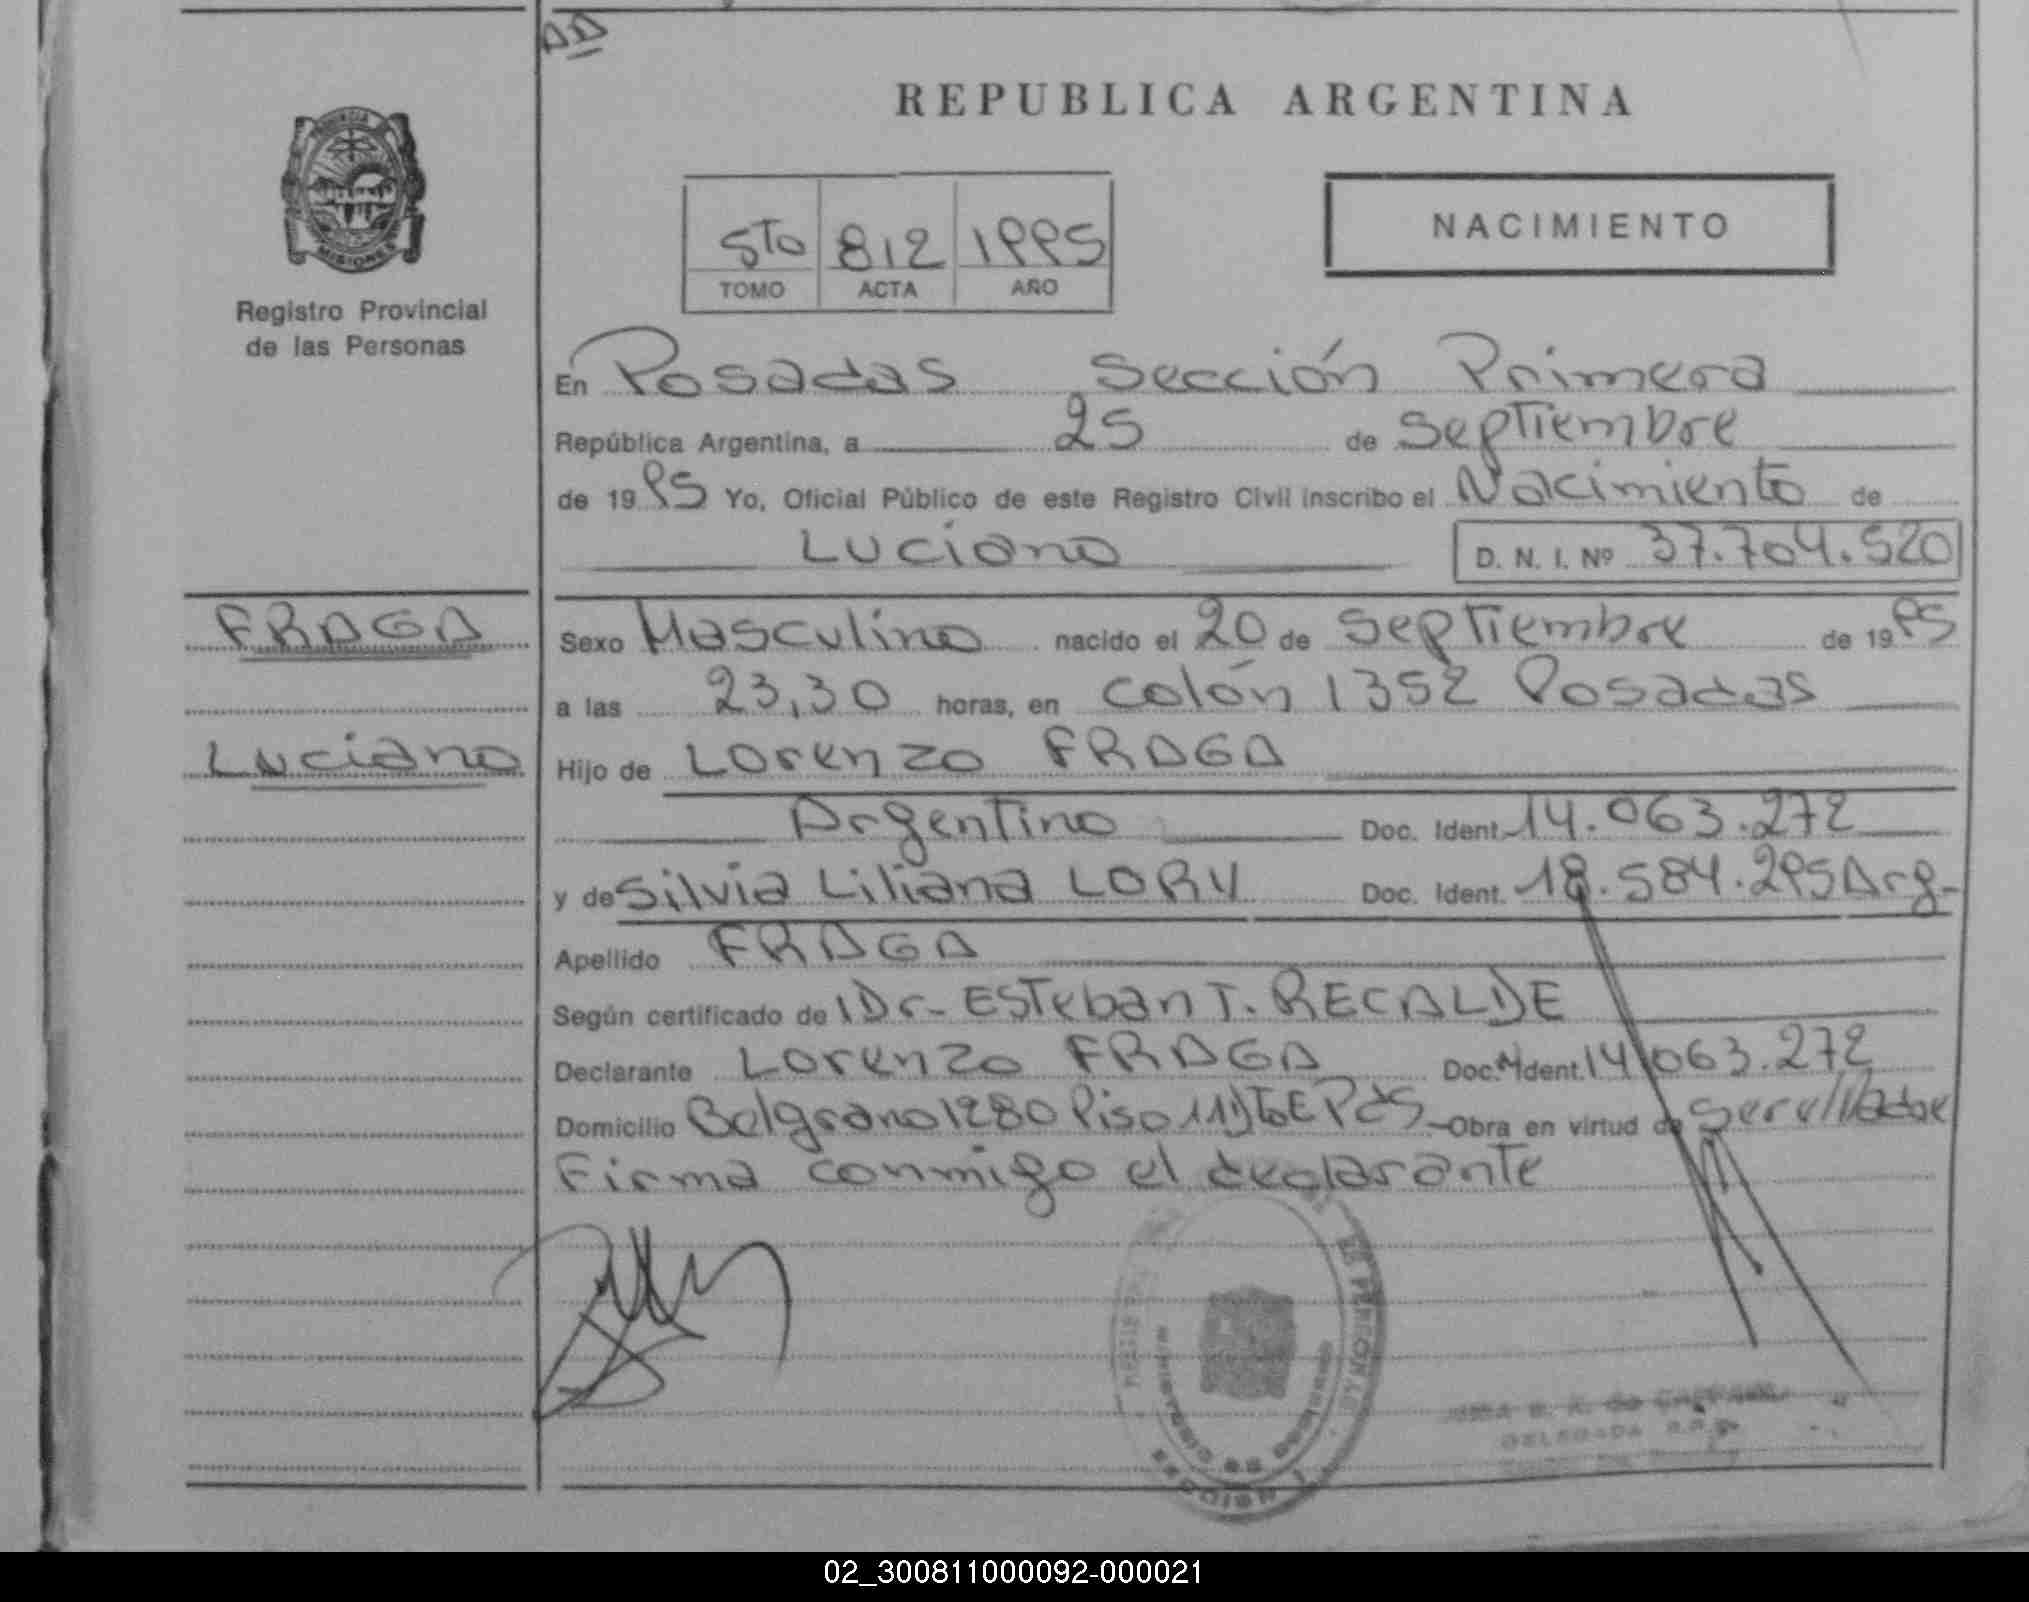 REPUBLICA ARGENTINA
PROVINCIA
MISIONES
Registro Provincial
de las Personas
5To 812 1995
TOMO ACTA AÑO
NACIMIENTO
En Posadas Sección Primera
República Argentina, a 25 de Septiembre
de 1995 Yo, Oficial Público de este Registro Civil inscribo el Nacimiento de
Luciano D. N. I. Nº 37.704.520
FRAGA
Luciano
Sexo Masculino nacido el 20 de Septiembre de 1995
a las 23,30 horas, en Colón 1352 Posadas
Hijo de Lorenzo FRAGA
Argentino Doc. Ident. 14.063.272
y de Silvia Liliana LORY Doc. Ident. 18.584.295 Arg-
Apellido FRAGA
Según certificado de Dr- Esteban T. RECALDE
Declarante Lorenzo FRAGA Doc. Ident. 14.063.272
Domicilio Belgrano 1280 Piso 11 DtoE Pdas - Obra en virtud de ser el Padre
Firma conmigo el declarante
DELEGADA
02_300811000092-000021